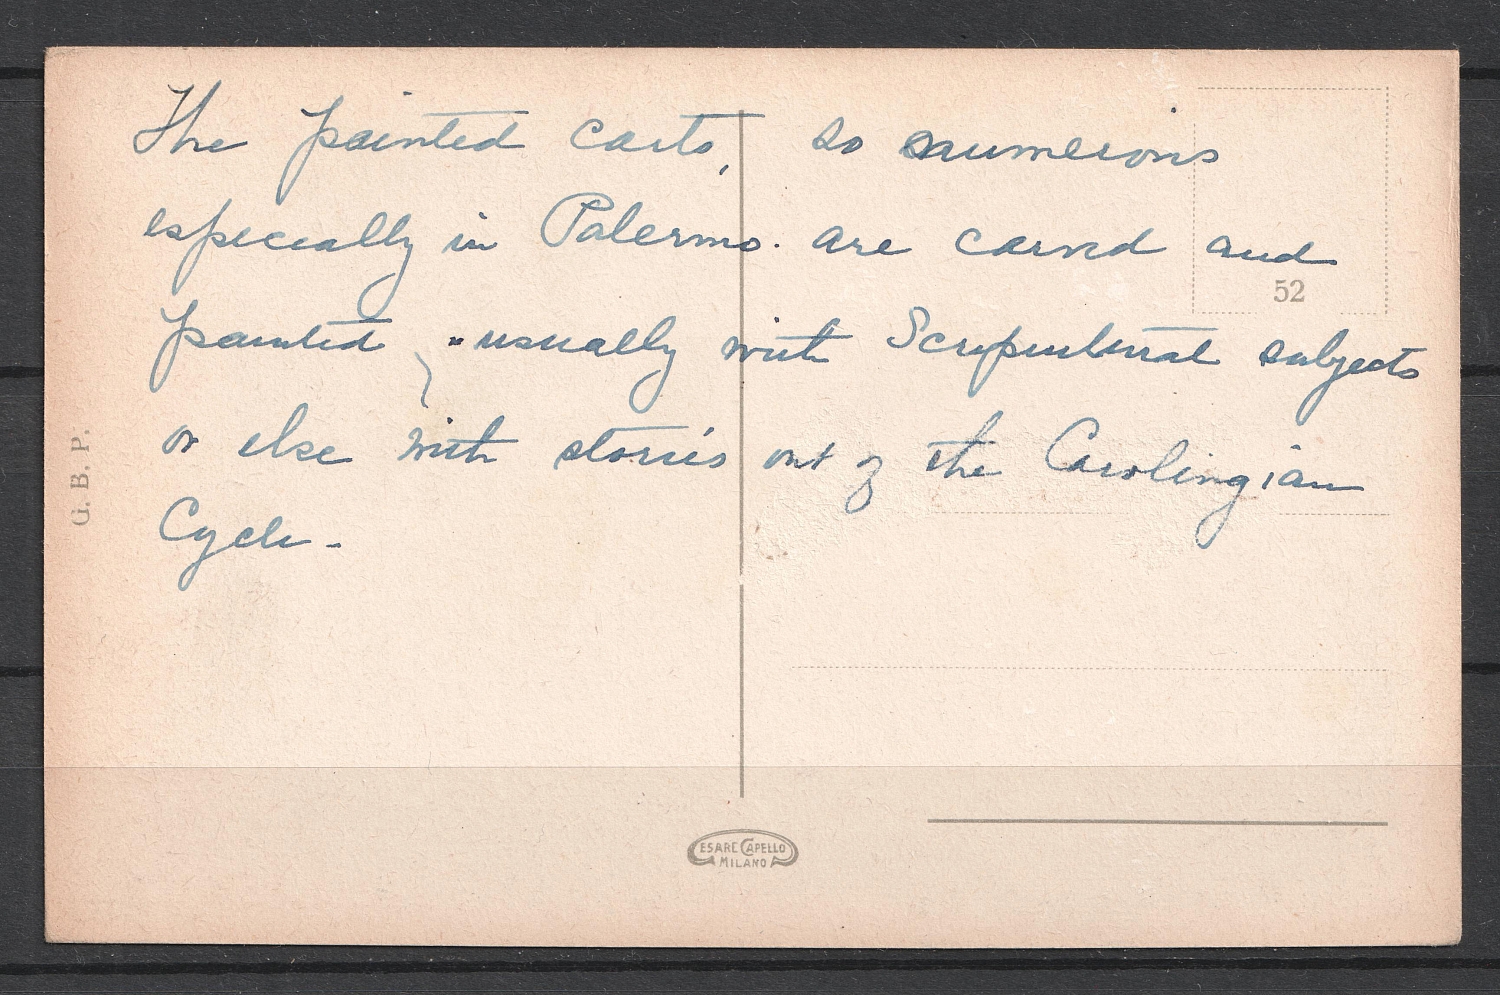 The painted carts, so numerous
especially in Palermo. are carved and
painted, usually with Scriptural subjects
or else with stories out of the Carolingian
Cycle.
52
G. B. P.
CESARE CAPELLO
MILANO